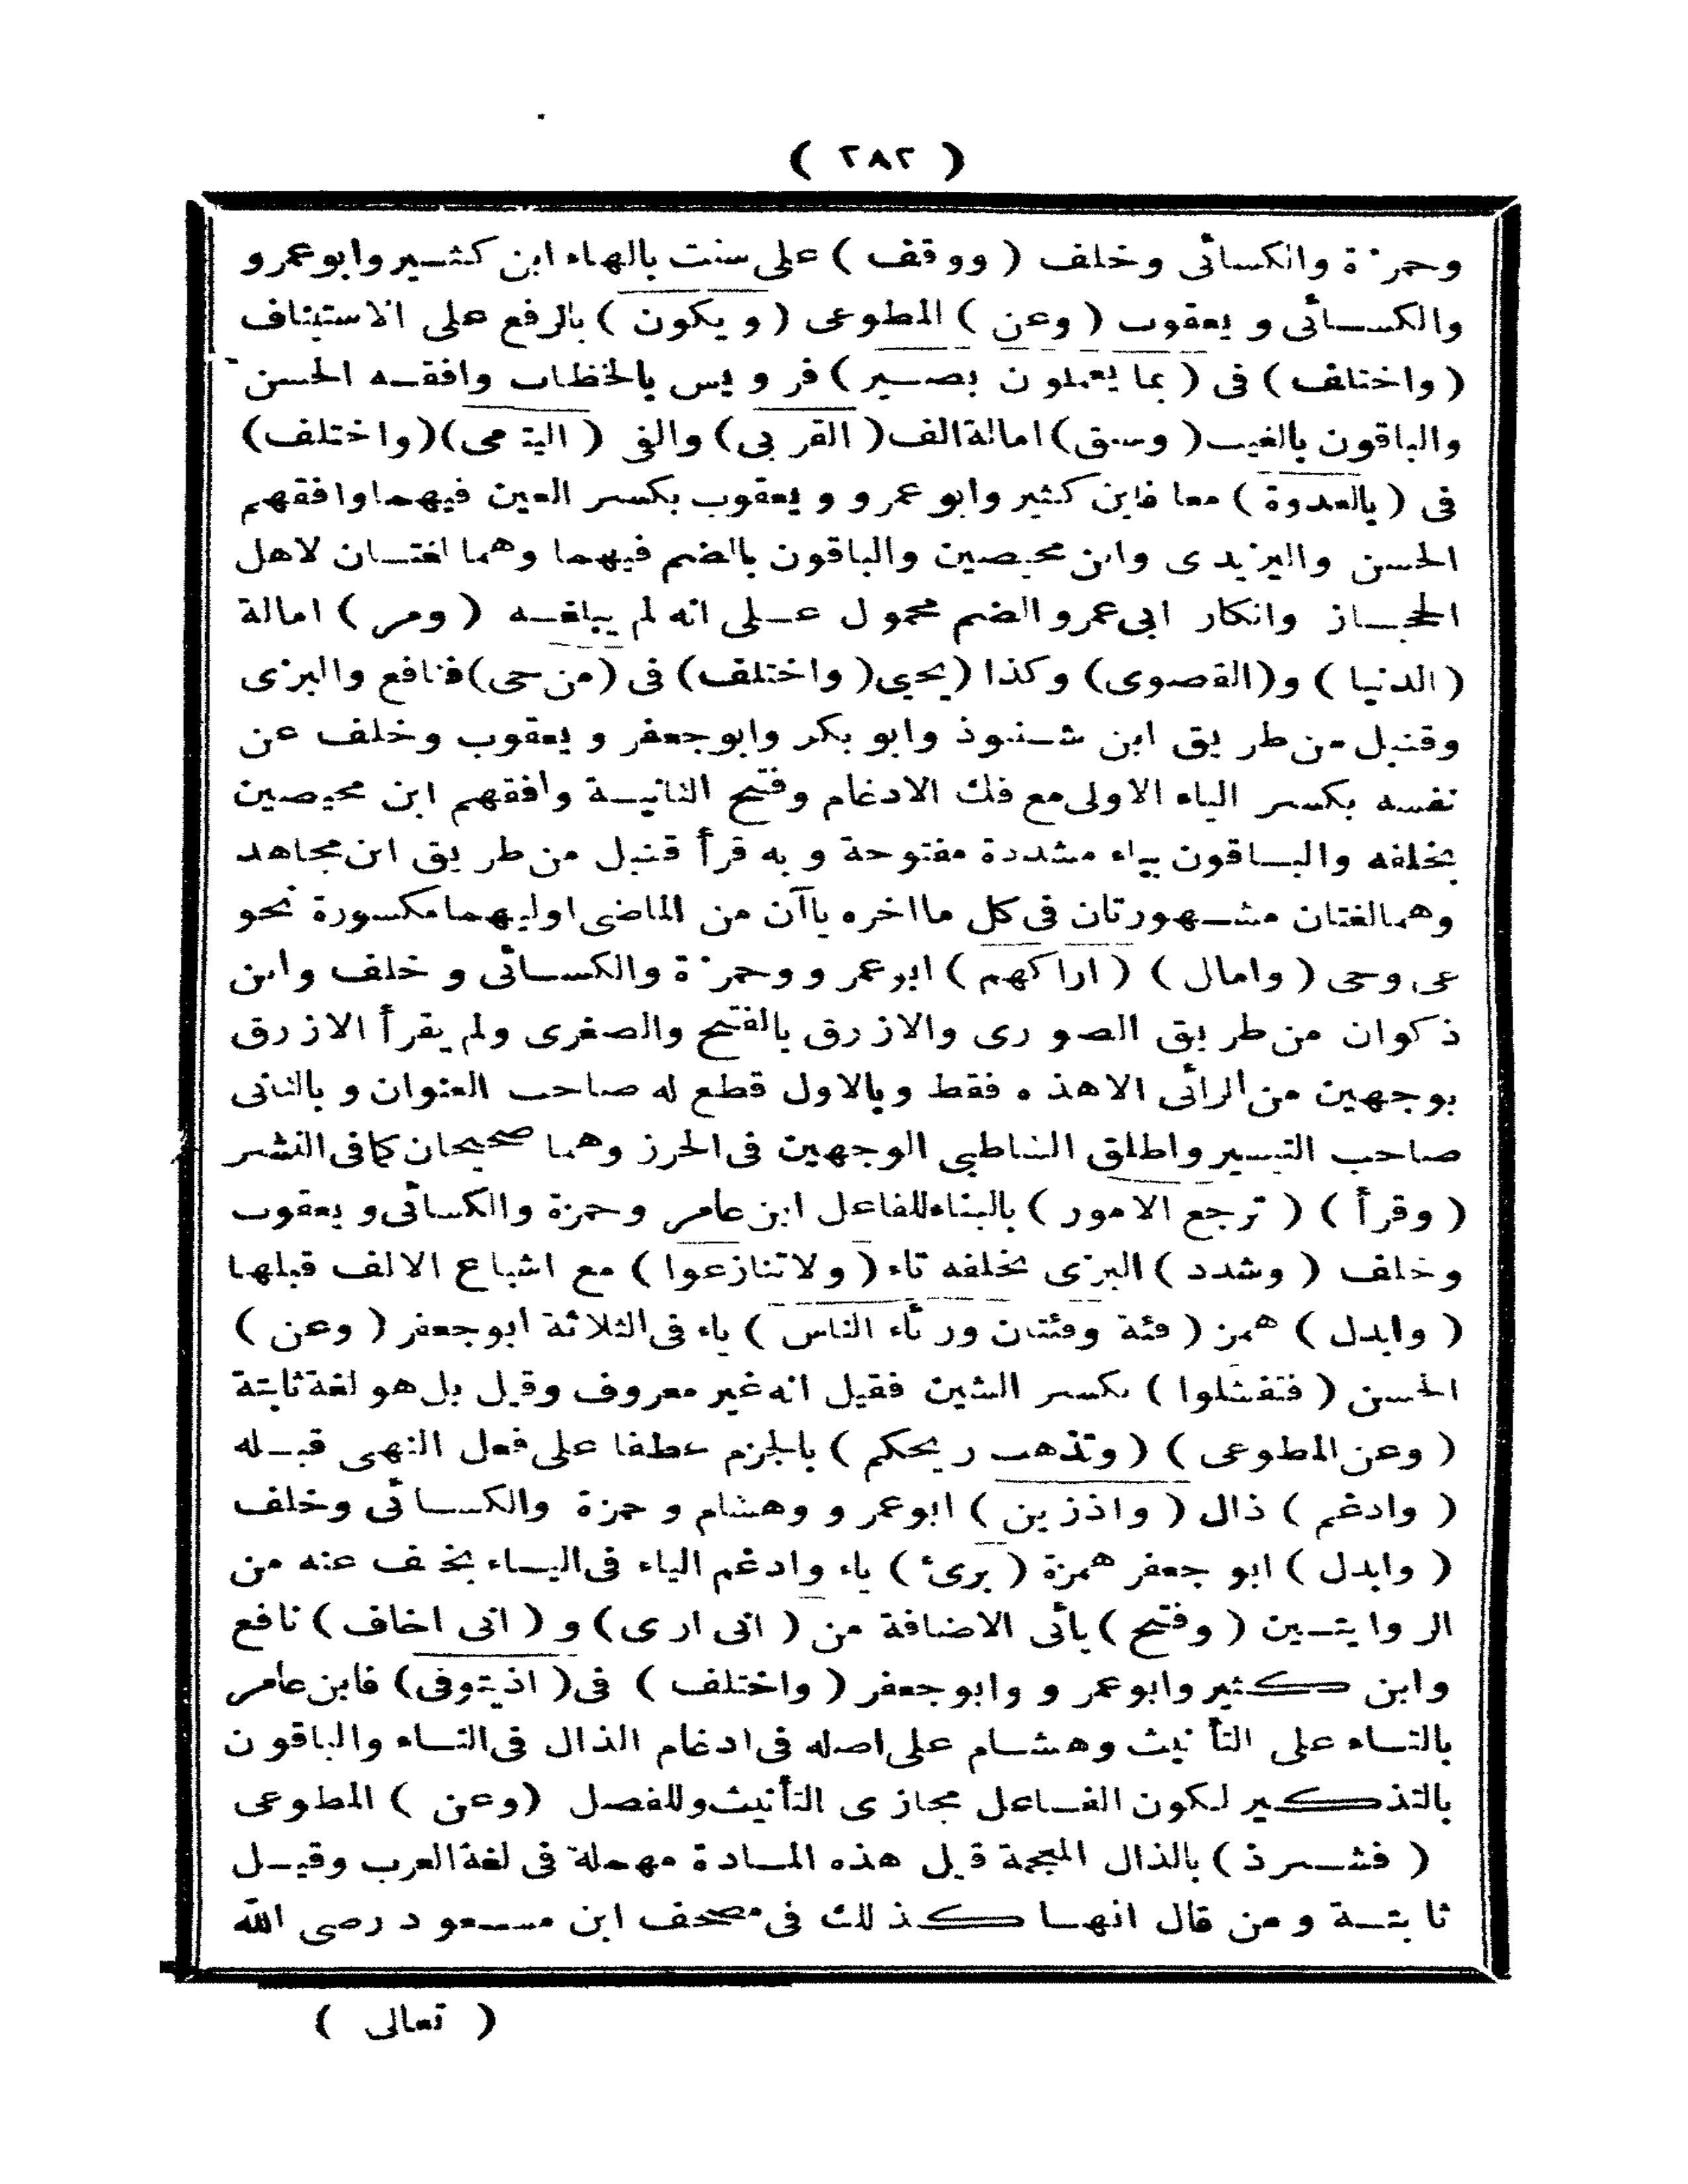 ( ٢٨٢ )
وحمزة والكسائى وخلف ( ووقف ) على سنت بالهاء ابن كثير وابو عمرو
والكسائى و يعقوب ( وعن ) المطوعى ( و يكون ) بالرفع على الاستيناف
( واختلف ) فى ( بما يعملون بصير ) فرويس بالخطاب وافقه الحسن
والباقون بالغيب ( وسبق ) امالة الف ( القربى ) والفى ( اليتمى ) ( واختلف )
فى ( بالعدوة ) معا فابن كثير وابو عمرو و يعقوب بكسر العين فيهما وافقهم
الحسن واليزيدى وابن محيصين والباقون بالضم فيهما وهما لغتان لاهل
الحجاز وانكار ابى عمرو الضم محمول على انه لم يبلغه ( ومر ) امالة
( الدنيا ) و ( القصوى ) وكذا ( يحيى ( واختلف ) فى ( من حى ) فنافع والبزى
وقنبل من طريق ابن شنبوذ وابو بكر وابو جعفر و يعقوب وخلف عن
نفسه بكسر الياء الاولى مع فك الادغام وفتح الثانية وافقهم ابن محيصين
بخلفه والباقون بياء مشددة مفتوحة و به قرأ قنبل من طريق ابن مجاهد
وهما لغتان مشهورتان فى كل ما اخره ياآن من الماضى اوليهما مكسورة نحو
عى وحى ( وامال ) ( اراكهم ) ابو عمرو وحمزة والكسائى و خلف وابن
ذكوان من طريق الصورى والازرق بالفتح والصغرى ولم يقرأ الازرق
بوجهين من الرائى الا هذه فقط و بالاول قطع له صاحب العنوان و بالثانى
صاحب التيسير واطلق الشاطبى الوجهين فى الحرز وهما صحيحان كما فى النشر
( وقرأ ) ( ترجع الامور ) بالبناء للفاعل ابن عامر وحمزة والكسائى و يعقوب
وخلف ( وشدد ) البزى بخلفه تاء ( ولا تنازعوا ) مع اشباع الالف قبلها
( وابدل ) همز ( فئة وفئتان ورئاء الناس ) ياء فى الثلاثة ابو جعفر ( وعن )
الحسن ( فتفشلوا ) بكسر الشين فقيل انه غير معروف وقيل بل هو لغة ثابتة
( وعن المطوعى ) ( وتذهب ريحكم ) بالجزم عطفا على فعل النهى قبله
( وادغم ) ذال ( واذ زين ) ابو عمرو وهشام و حمزة والكسائى وخلف
( وابدل ) ابو جعفر همزة ( برئ ) ياء وادغم الياء فى الياء بخلف عنه من
الروايتين ( وفتح ) يائى الاضافة من ( انى ارى ) و ( انى اخاف ) نافع
وابن كثير وابو عمرو وابو جعفر ( واختلف ) فى ( اذ يتوفى ) فابن عامر
بالتاء على التأنيث وهشام على اصله فى ادغام الذال فى التاء والباقون
بالتذكير لكون الفاعل مجازى التأنيث وللفصل ( وعن ) المطوعى
( فشرذ ) بالذال المعجمة قيل هذه المادة مهملة فى لغة العرب وقيل
ثابتة و من قال انها كذلك فى مصحف ابن مسعود رضى الله
( تعالى )